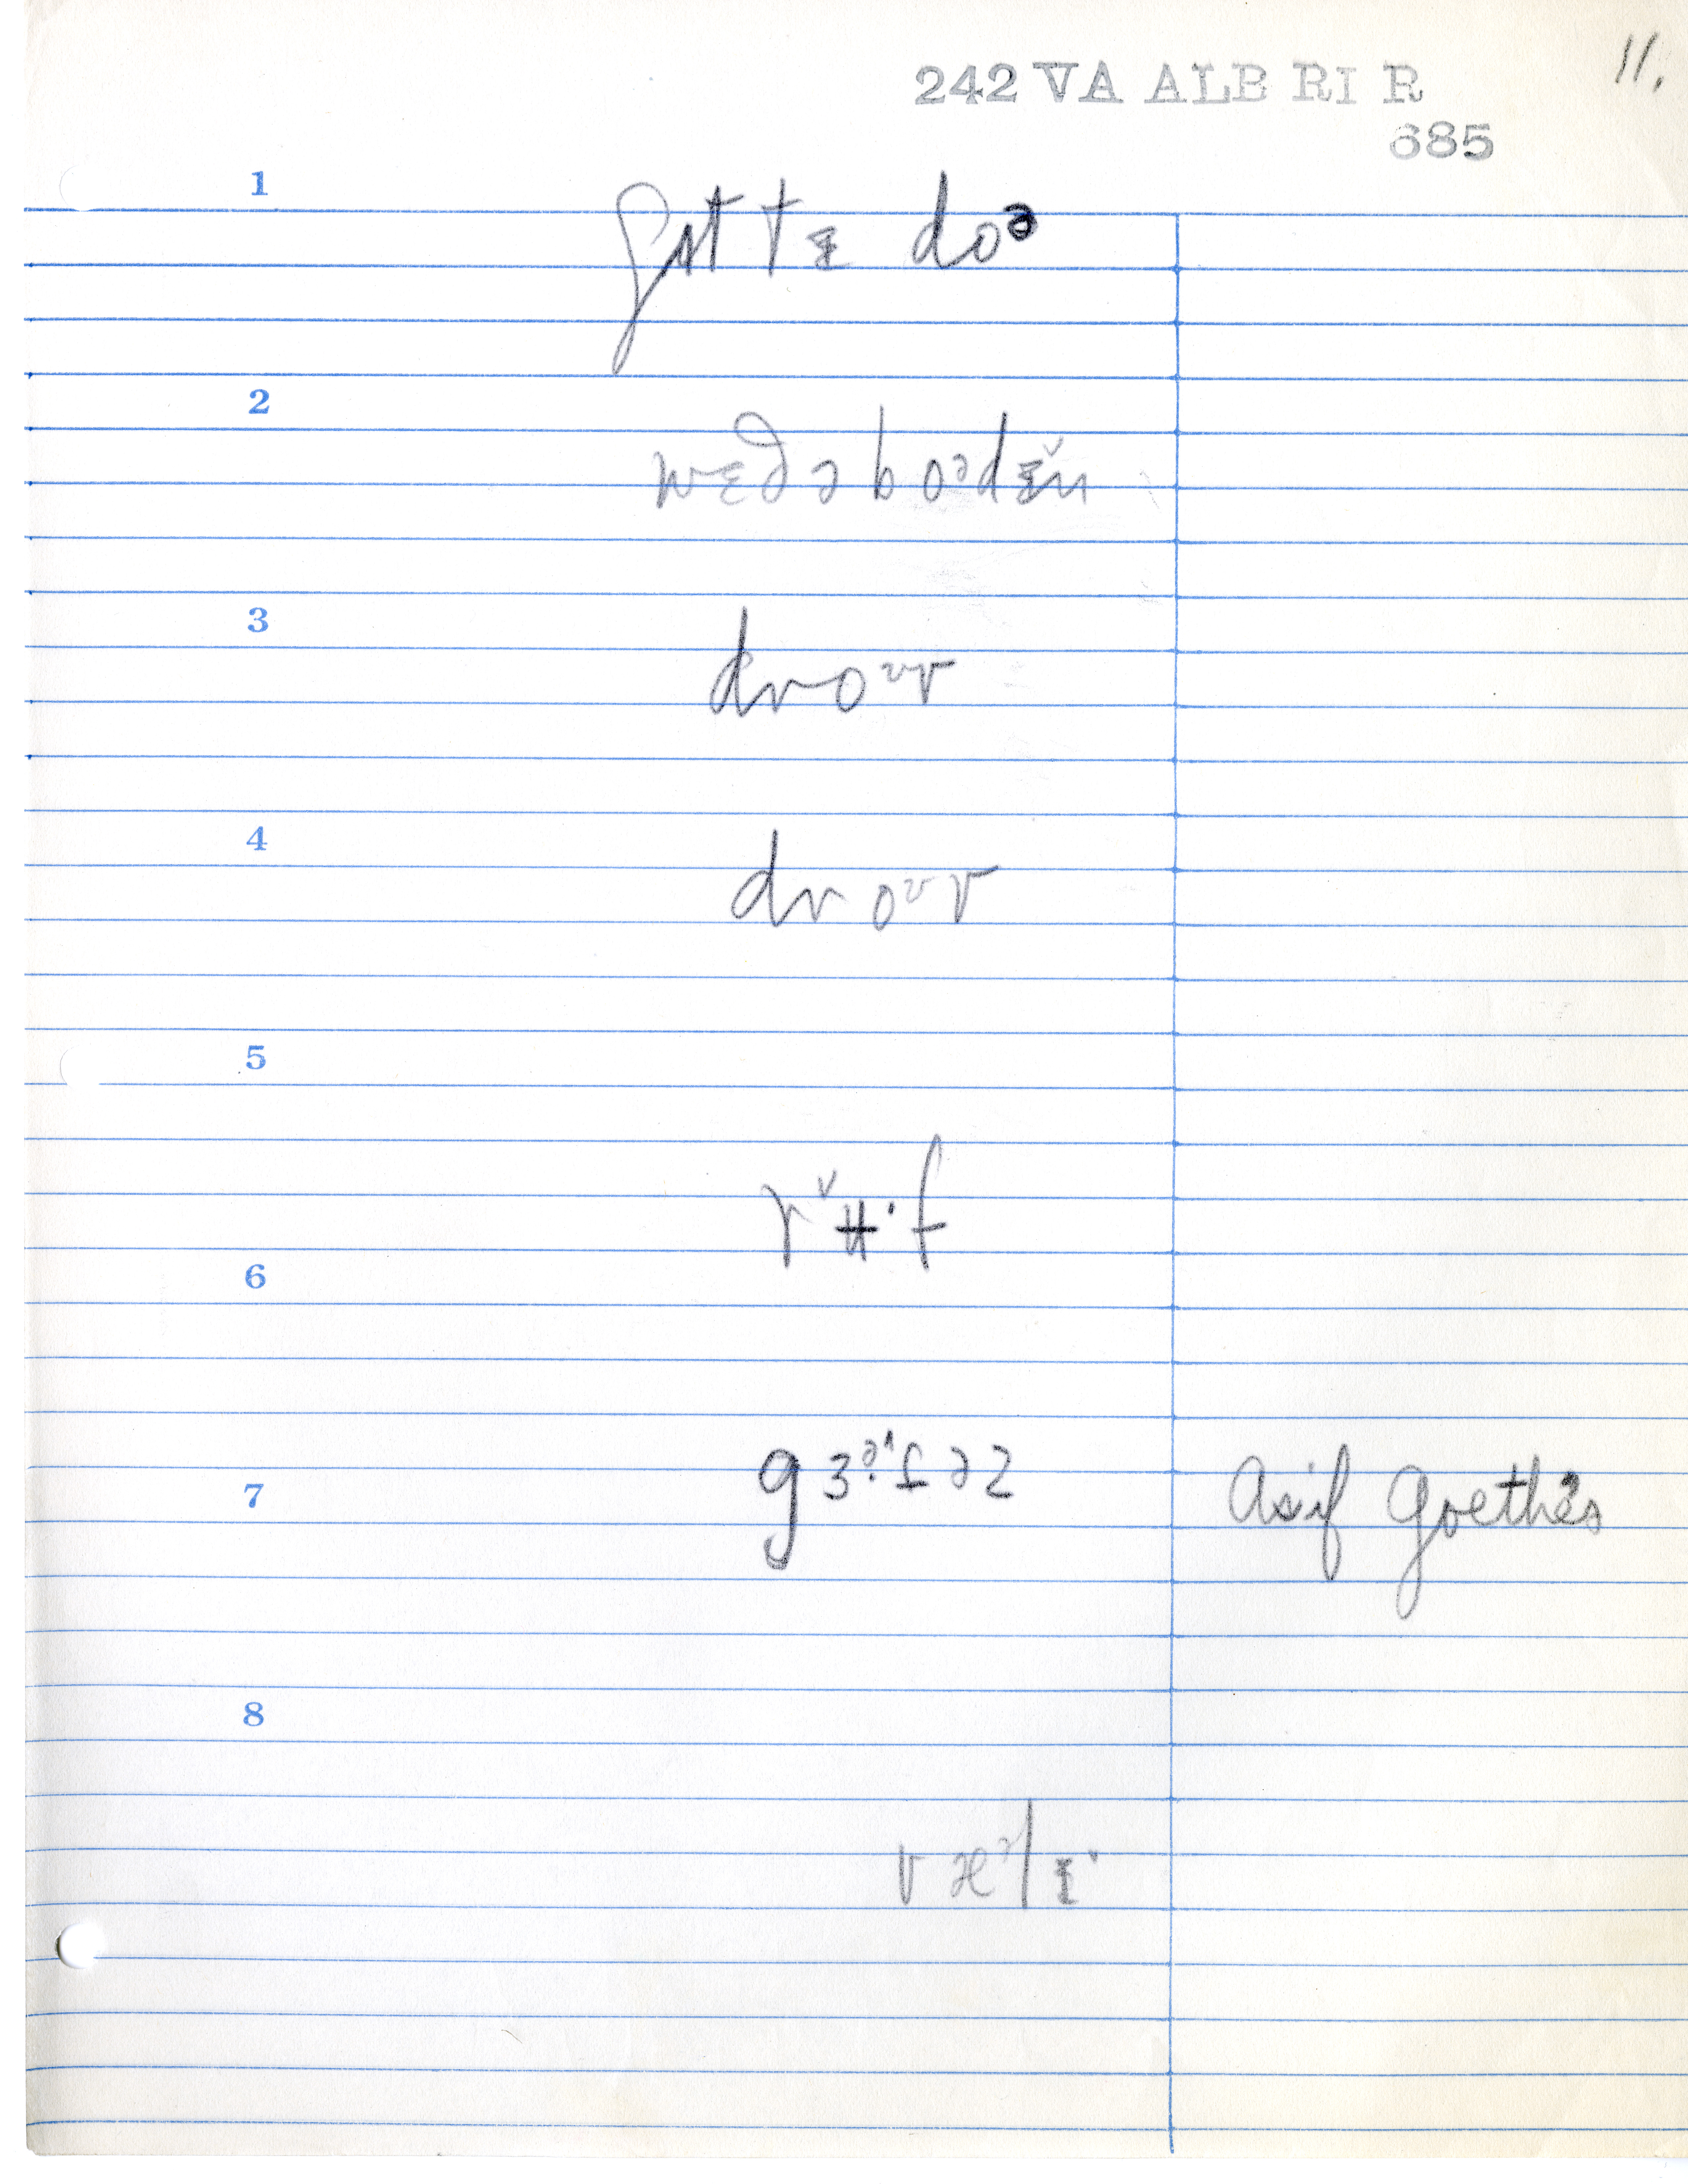 11.
242 VA ALB RI R
685
1
ʃʌt tɪ doᵊ
2
wɛðəboᵊdɪ̆n
3
droᶷv
4
droᶷv
5
rʉ̌·f
6
gɜᵊ·təz
7
asif Goethes
8
væᵊlɪ·